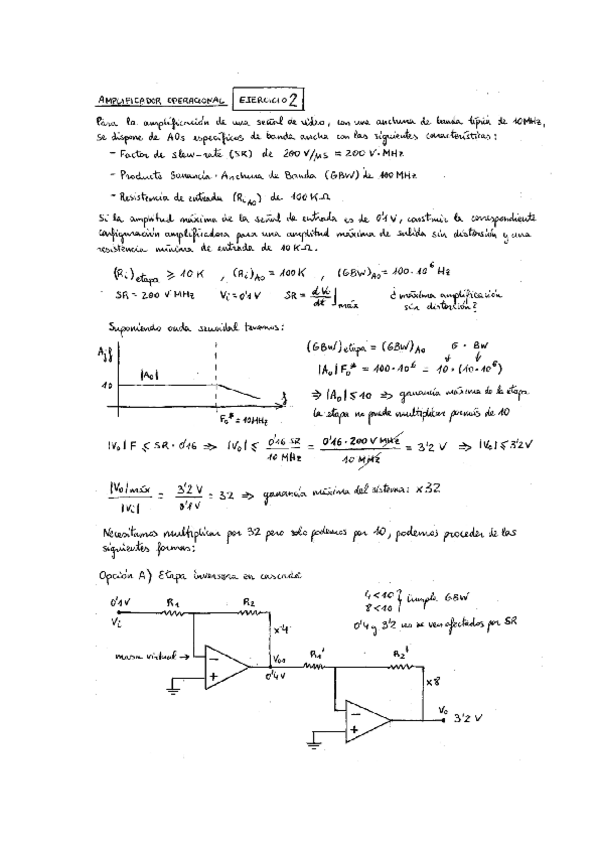 AMPLIFICADOR OPERACIONAL EJERCICIO 2
Para la amplificación de una señal de video, con una anchura de banda típica de 10MHz,
se dispone de AOs específicos de banda ancha con las siguientes características:
- Factor de slew-rate (SR) de 200 V/μs = 200 V·MHz
- Producto Ganancia · Anchura de Banda (GBW) de 100 MHz
- Resistencia de entrada (RiAO) de 100 K·Ω
Si la amplitud máxima de la señal de entrada es de 0'1 V, construir la correspondiente
configuración amplificadora para una amplitud máxima de salida sin distorsión y una
resistencia mínima de entrada de 10 K·Ω.
(Ri)etapa ⩾ 10 K , (Ri)AO = 100K , (GBW)AO = 100·10⁶ Hz
SR = 200 V MHz Vi = 0'1 V SR = dVi/dt | máx ¿máxima amplificación
sin distorsión?
Suponiendo onda senoidal tenemos:
(GBW)etapa = (GBW)AO G · BW
|Ao| Fo* = 100·10⁶ = 10 · (10·10⁶)
⇒ |Ao| ⩽ 10 ⇒ ganancia máxima de la etapa
La etapa no puede multiplicar por más de 10
Aif
|Ao|
10
f
Fo* = 10MHz
|Vo| F ⩽ SR · 0'16 ⇒ |Vo| ⩽ 0'16 SR / 10 MHz = 0'16 · 200 V MHz / 10 MHz = 3'2 V ⇒ |Vo| ⩽ 3'2V
|Vo|máx / |Vi| = 3'2 V / 0'1 V = 32 ⇒ ganancia máxima del sistema: x32
Necesitamos multiplicar por 32 pero solo podemos por 10, podemos proceder de las
siguientes formas:
Opción A) Etapa inversora en cascada
4 < 10
8 < 10 } cumple GBW
0'4 y 3'2 no se ven afectados por SR
0'1V R1 R2
Vi
x4
masa virtual → − Vo1 R1' R2'
+ 0'4V
x8
− Vo
+ 3'2 V